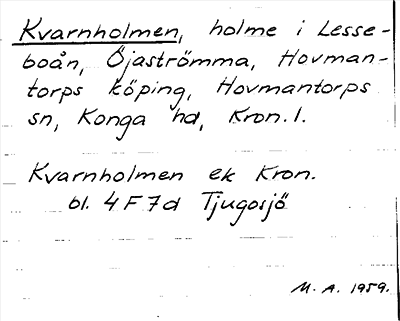 Kvarnholmen, holme i Lesse-
boån, Öjaströmma, Hovman-
torps köping, Hovmantorps
sn, Konga hd, Kron. l.
Kvarnholmen ek Kron.
bl. 4F7d Tjugosjö
M. A. 1959.